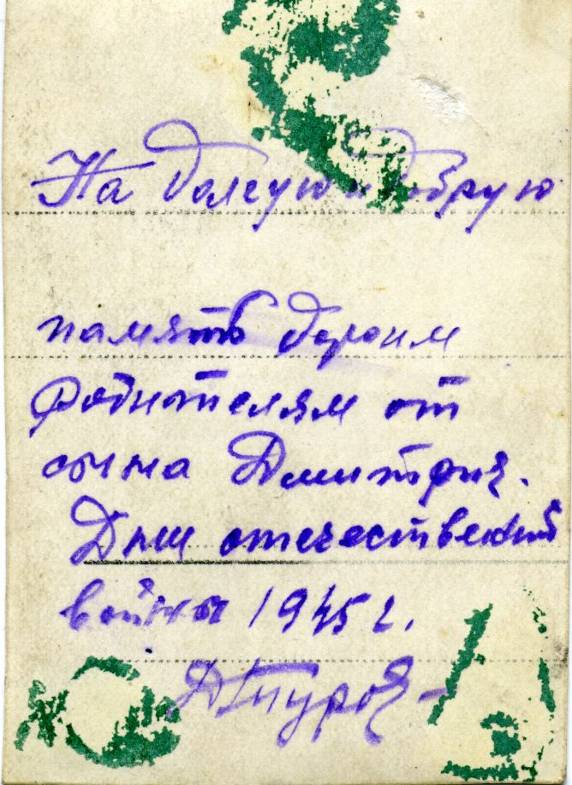 На долгую и добрую
память дороим
родителям от
сына Дмитрия.
Дни отечественной
войны 1945 г.